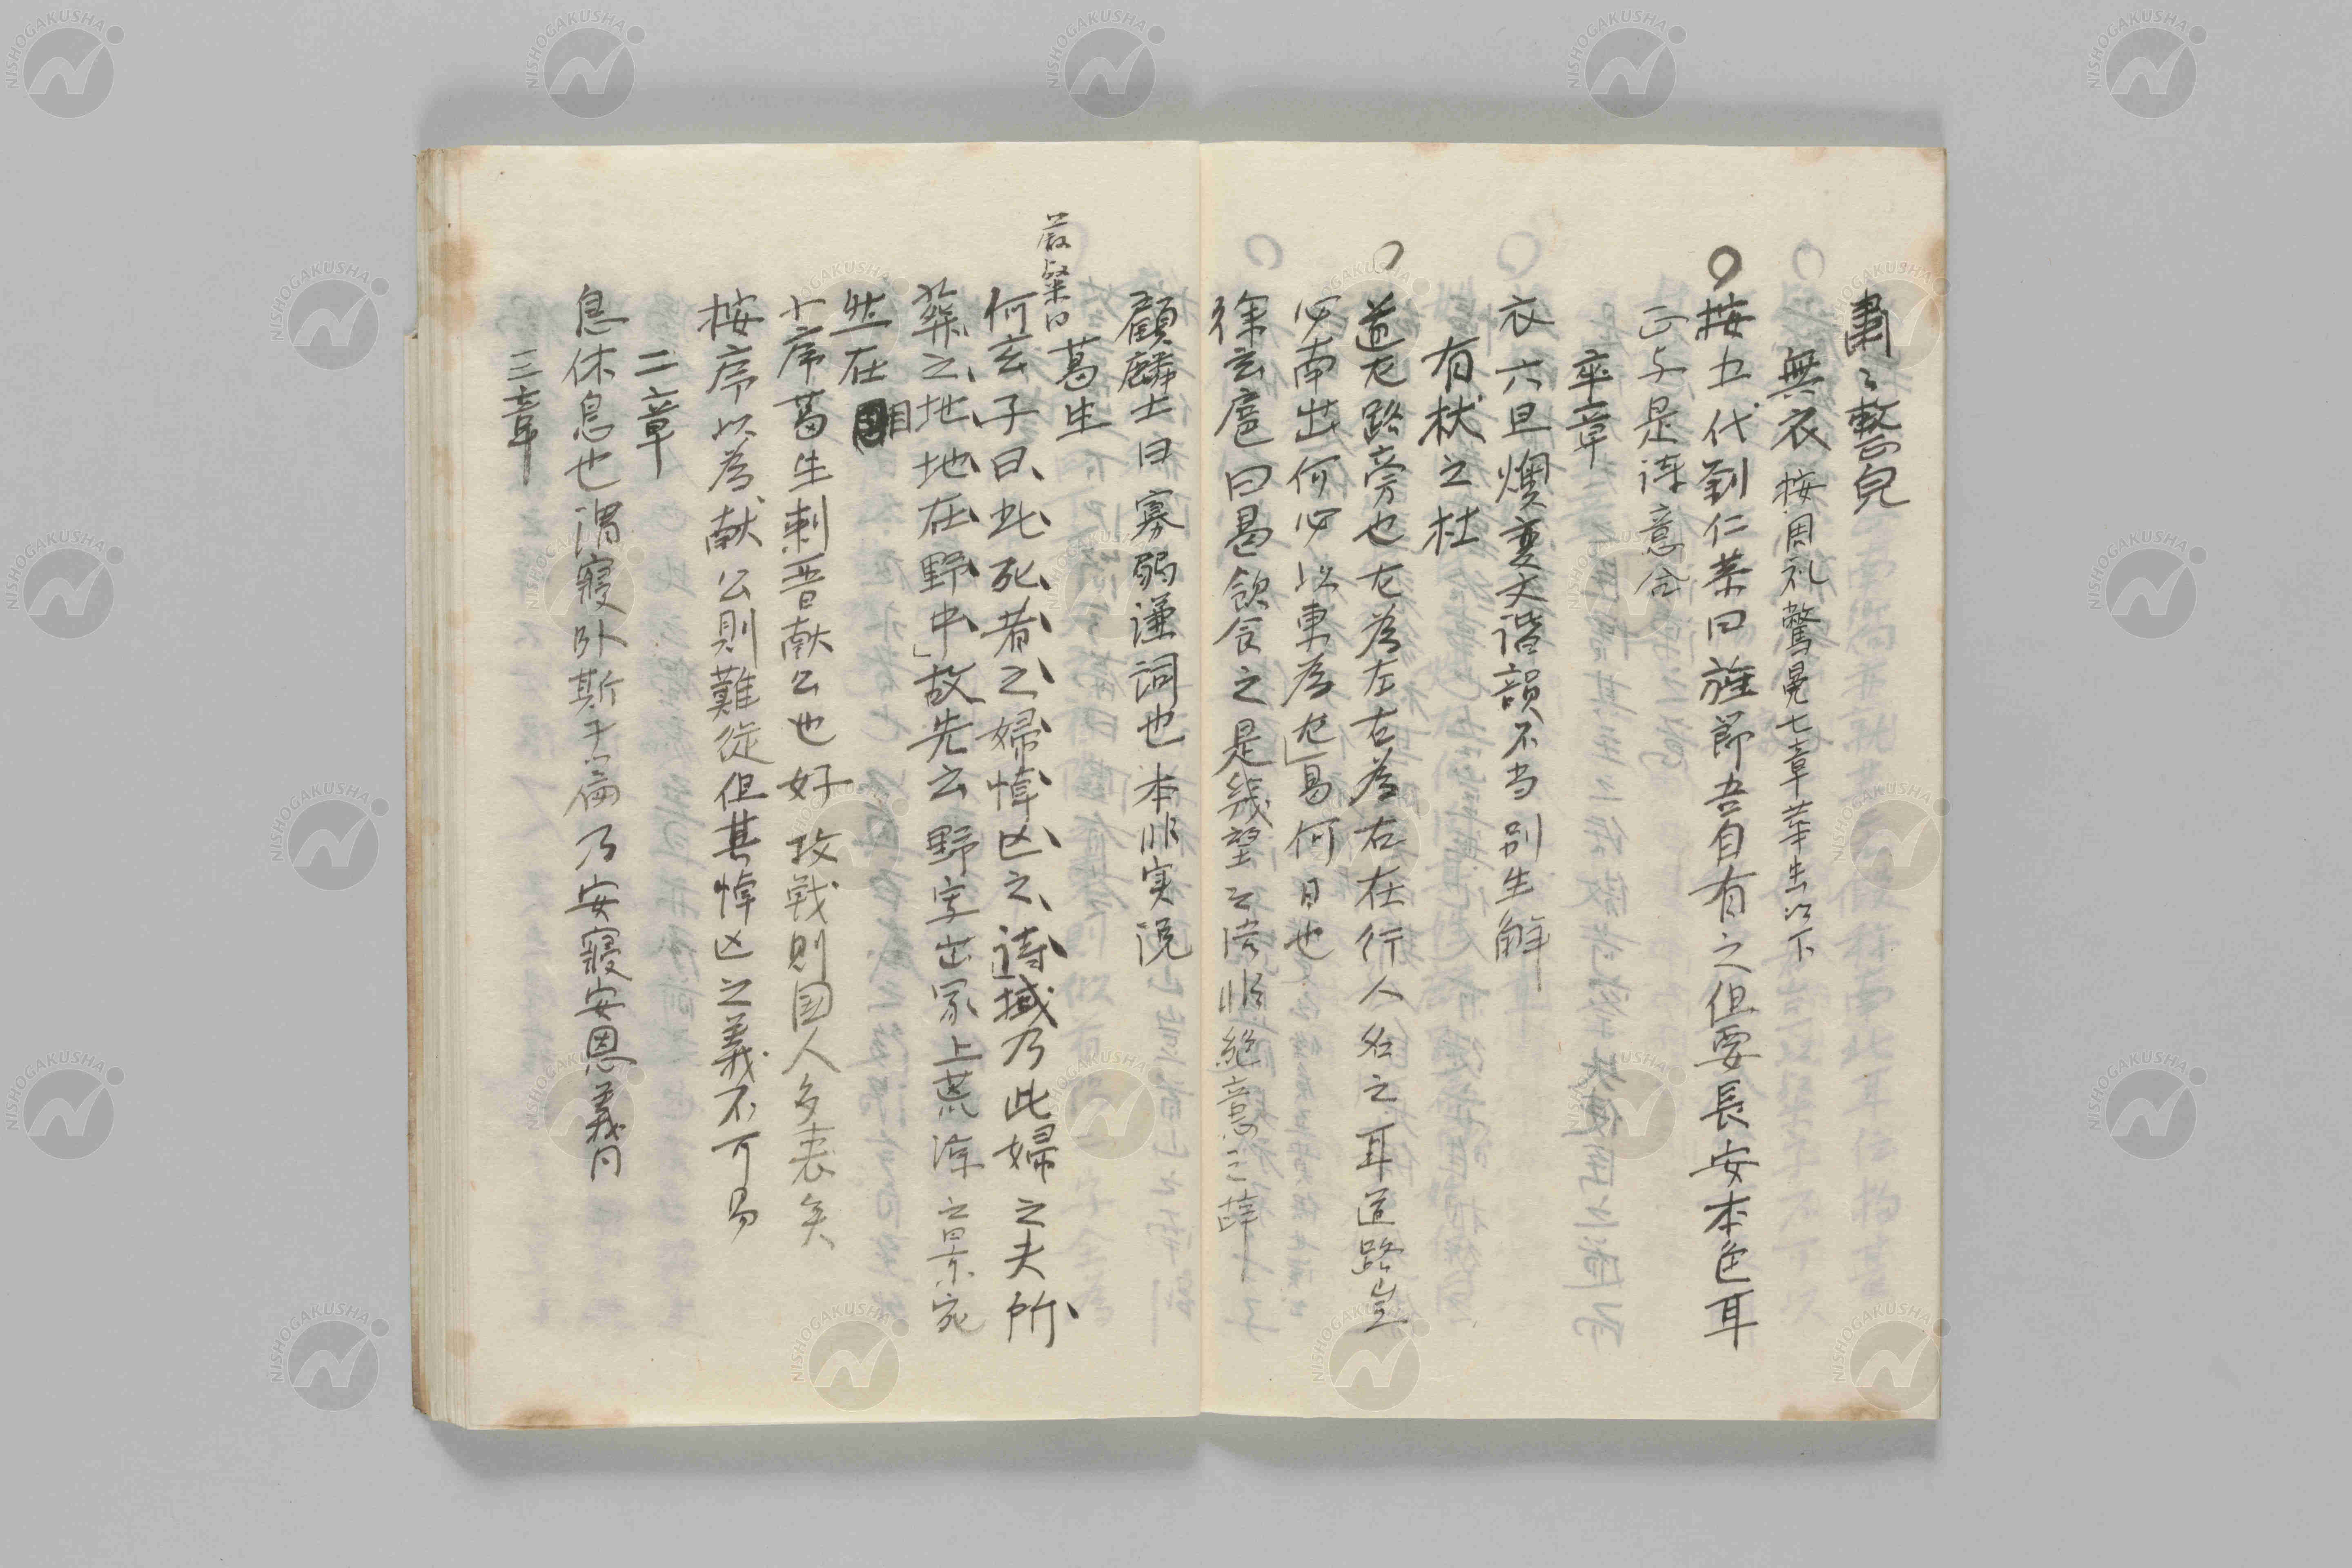 肅〻整皃
無衣 按周礼鷩冕七章華虫以下
○按五代劉仁恭曰旌節吾自有之但要長安本色耳
正与是詩意合
卒章
衣六且燠蓋大諧韻不当別生解
有杕之杜
○道左路旁也左為左右為右在行人名之耳道路豈
必南出何必以東為左」曷何日也
徐玄扈曰曷飲食之是幾望之濳非絶意之辞
顧麟士曰寡弱謙詞也本非実説
葛生
嚴粲曰
何玄子曰此死者之婦悼亡之詩」域乃此婦之夫所
葬之地地在野中」故先云野字出冢上荒凉之景宛
然在目
小序葛生刺晋献公也好攻戦則国人多喪矣
按序以為献公則難從但其悼亡之義不可易
二章
息休息也謂寝卧斯 乃安寝安息義同
三章
NISHOGAKUSHA